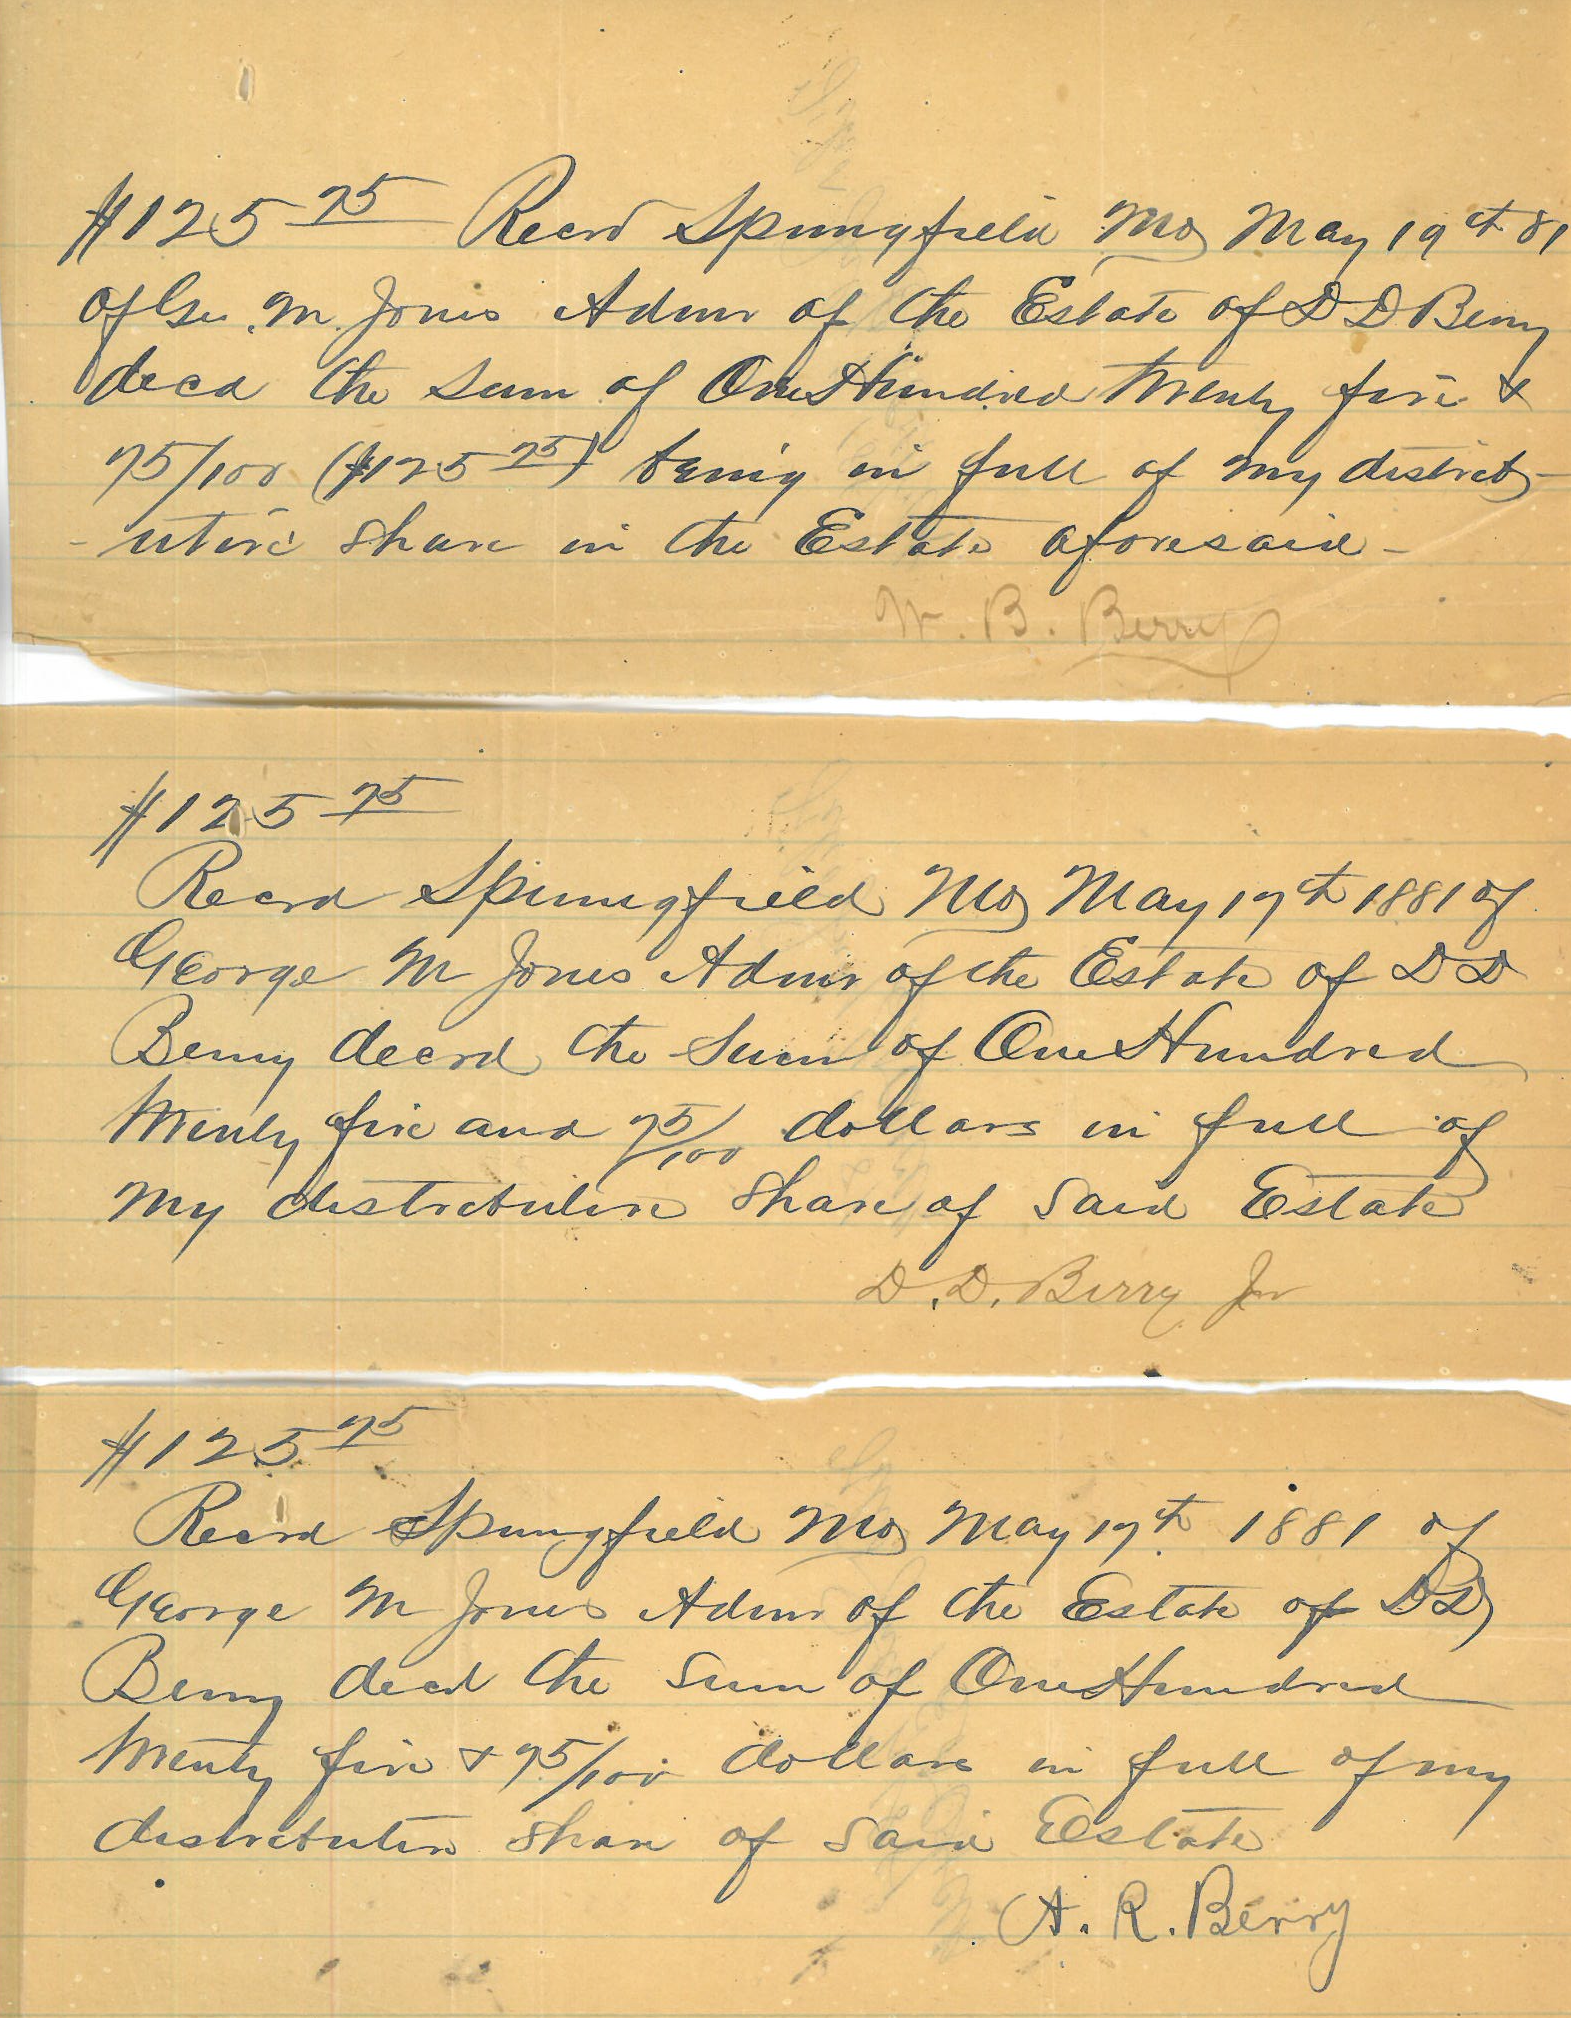 $125 75 Recvd Springfield Mo May 19th 81
of Geo. M. Jones Admr of the Estate of D D Berry
decd the sum of One Hundred Twenty five &
75/100 ($125 75) being in full of my distrib-
-utive share in the Estate aforesaid-
W. B. Berry
$125 75
Recvd Springfield Mo May 17th 1881 of
George M Jones Admr of the Estate of D D
Berry decvd the Sum of One Hundred
Twenty five and 75/100 dollars in full of
my distributive share of said Estate
D. D. Berry Jr
$125 75
Recvd Springfield Mo May 17th 1881 of
George M Jones Admr of the Estate of D D
Berry decd the sum of One Hundred
Twenty five & 75/100 dollars in full of my
distributive share of said Estate
A. R. Berry